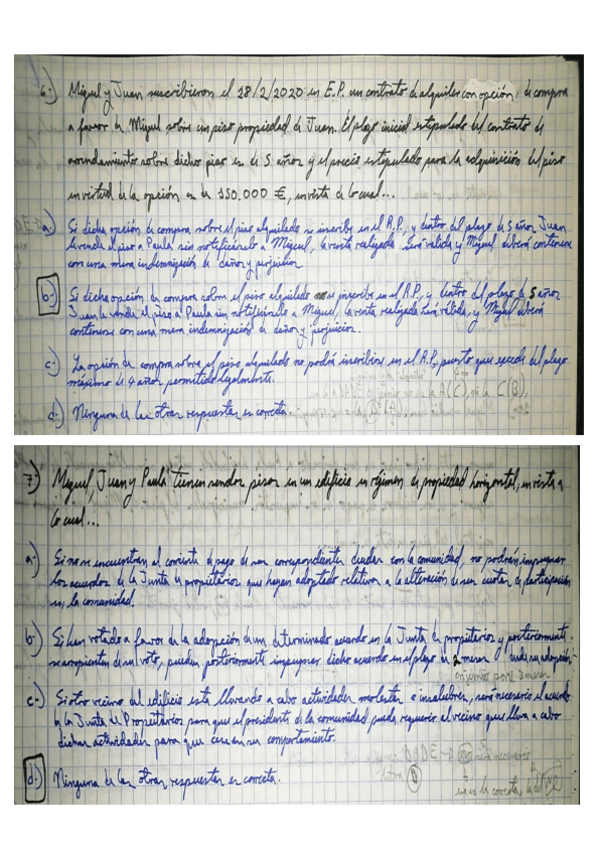 6.-) Miguel y Juan suscribieron el 28/2/2020 en E.P. un contrato de alquiler con opción de compra
a favor de Miguel sobre un piso propiedad de Juan. El plazo inicial estipulado del contrato de
arrendamiento sobre dicho piso es de 5 años y el precio estipulado para la adquisición del piso
en virtud de la opción es de 150.000 €, en vista de lo cual...
a.-) Si dicha opción de compra sobre el piso alquilado se inscribe en el R.P., y dentro del plazo de 5 años Juan
le vende el piso a Paula sin notificárselo a Miguel, la venta realizada será válida y Miguel deberá contentarse
con una mera indemnización de daños y perjuicios.
b.-) Si dicha opción de compra sobre el piso alquilado no se inscribe en el R.P., y dentro del plazo de 5 años
Juan le vende el piso a Paula sin notificárselo a Miguel, la venta realizada será válida, y Miguel deberá
contentarse con una mera indemnización de daños y perjuicios.
c.-) La opción de compra sobre el piso alquilado no podrá inscribirse en el R.P., puesto que excede del plazo
máximo de 4 años permitido legalmente.
d.-) Ninguna de las otras respuestas es correcta.
7.-) Miguel, Juan y Paula tienen sendos pisos en un edificio en régimen de propiedad horizontal, en vista a
lo cual...
a.-) Si no se encuentran al corriente de pago de sus correspondientes deudas con la comunidad, no podrán impugnar
los acuerdos de la Junta de propietarios que hayan adoptado relativos a la alteración de sus cuotas de participación
en la comunidad.
b.-) Si han votado a favor de la adopción de un determinado acuerdo en la Junta de propietarios y posteriormente
se arrepienten de su voto, pueden posteriormente impugnar dicho acuerdo en el plazo de 2 meses adopción
c.-) Si otro vecino del edificio está llevando a cabo actividades molestas e insalubres, será necesario el acuerdo
de la Junta de Propietarios para que el presidente de la comunidad pueda requerir al vecino que lleva a cabo
dichas actividades para que cese en su comportamiento.
d.-) Ninguna de las otras respuestas es correcta.